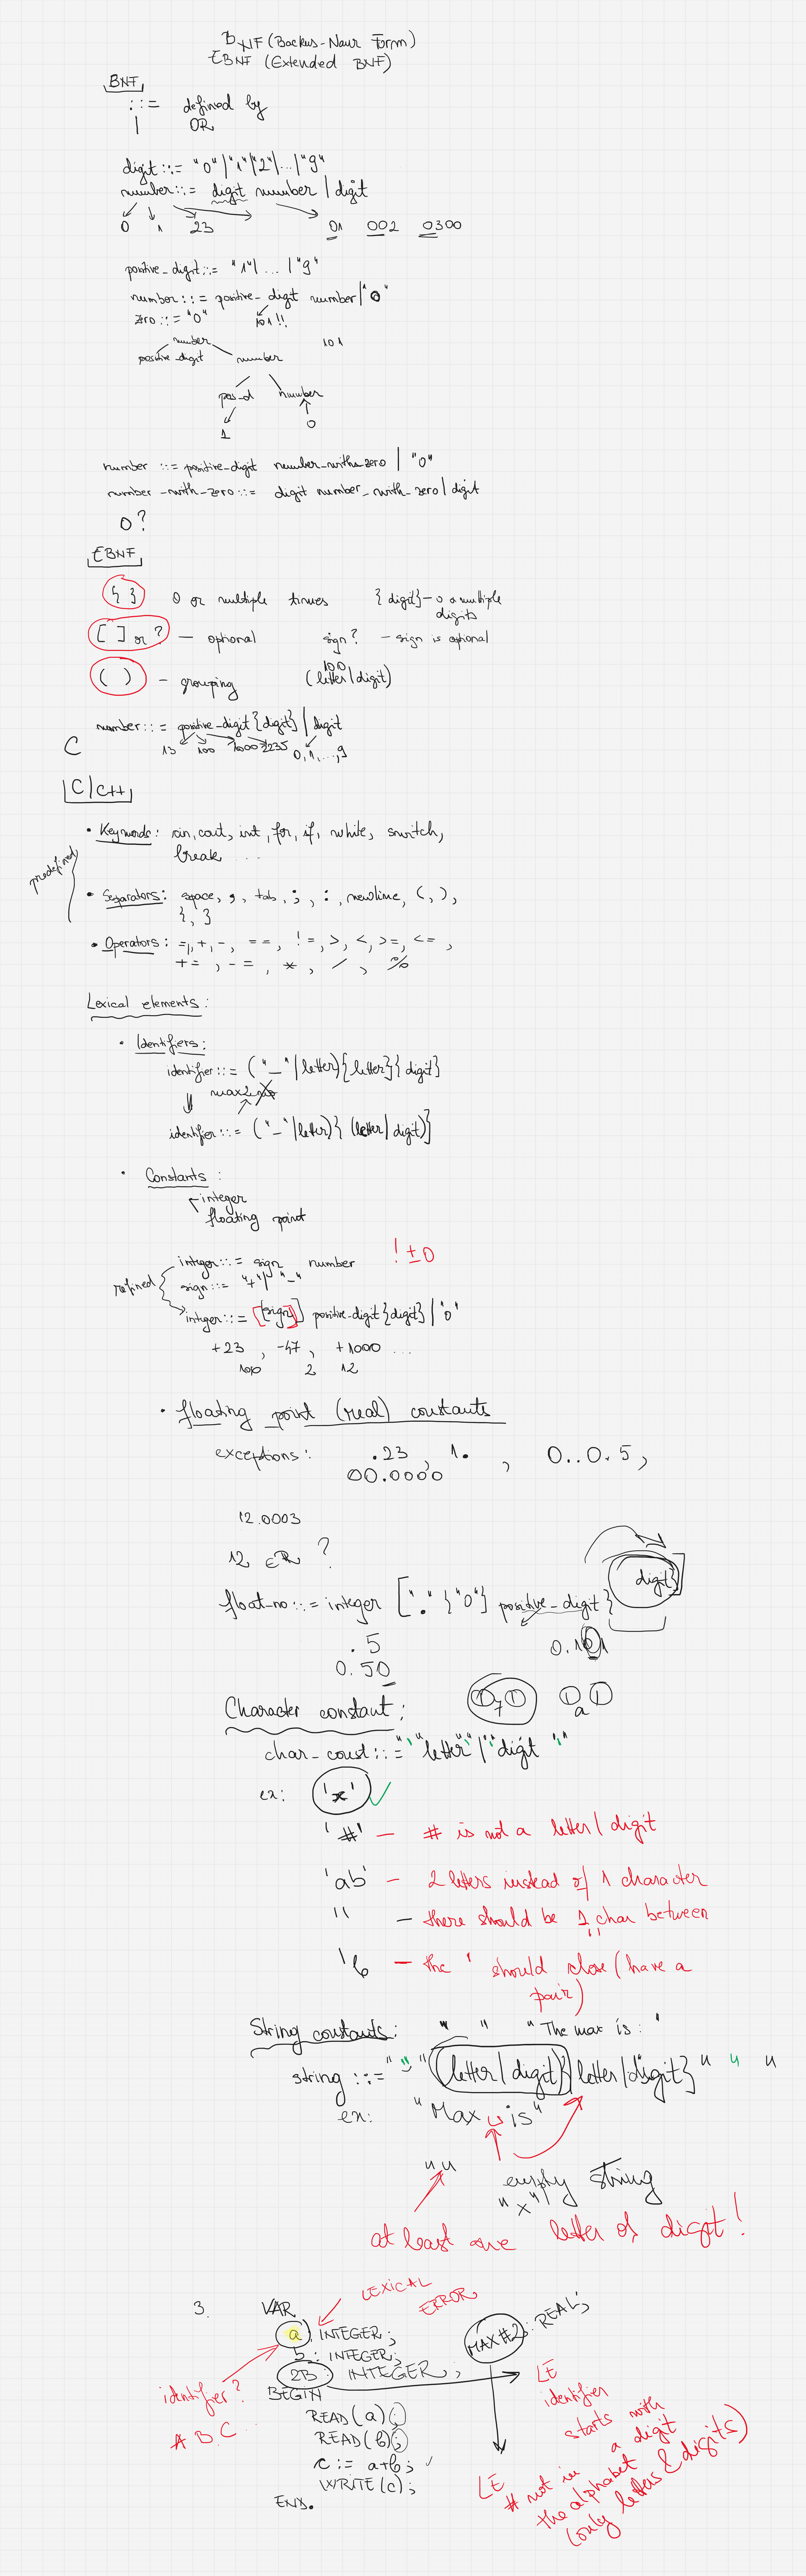 BNF (Backus-Naur Form)
EBNF (Extended BNF)
BNF
::= defined by
| OR
digit ::= "0"|"1"|"2"|...|"9"
number ::= digit number | digit
0 1 23 01 002 0300
positive_digit ::= "1"|...|"9"
number ::= positive_digit number|"0"
zero ::= "0" 101!!
number 101
positive_digit number
pos_d number
1 0
number ::= positive-digit number_with_zero | "0"
number_with_zero ::= digit number_with_zero | digit
0?
EBNF
{ } 0 or multiple times {digit} - 0 or multiple digits
[ ] or ? - optional sign? - sign is optional
( ) - grouping (letter|digit)
100
number ::= positive_digit {digit} | digit
C 13 100 1000 2235 0,1,...,9
C/C++
• Keywords: cin, cout, int, for, if, while, switch,
break ...
predefined
• Separators: space, ,, tab, ;, :, newline, (, ),
{, }
• Operators: =, +, -, ==, !=, >, <, >=, <=,
+=, -=, *, /, %
Lexical elements:
• Identifiers:
identifier ::= ("_"|letter){letter}{digit}
identifier ::= ("_"|letter){(letter|digit)}
• Constants:
integer
floating point
integer ::= sign number ! ±0
sign ::= "+"|"-"
refined
integer ::= [sign] positive_digit{digit}|"0"
+23, -47, +1000 ...
100 2 12
• floating point (real) constants
exceptions: .23, 1. , 0..0.5,
00.0000
12.0003
12 ∈ R ?
float_no ::= integer ["." {"0"} positive_digit} digit}]
.5 0.101
0.50
Character constant:
char_const ::= "'" letter "'" | "'" digit "'"
ex: 'x' ✓
'#' - # is not a letter/digit
'ab' - 2 letters instead of 1 character
'' - there should be 1 char between ''
'b - the ' should close (have a
pair)
String constants: " " "The max is: "
string ::= " " " (letter|digit){letter|digit} " " "
ex: "Max is"
"" empty string
"x"
at least one letter or digit!
3. VAR
LEXICAL
ERROR
a: INTEGER;
b: INTEGER;
MAX#2: REAL;
2B: INTEGER;
identifier?
A B C ...
BEGIN
READ(a);
READ(b);
c := a+b; ✓
WRITE(c);
END.
LE
identifier
starts with
a digit
LE
# not in
the alphabet
(only letters & digits)